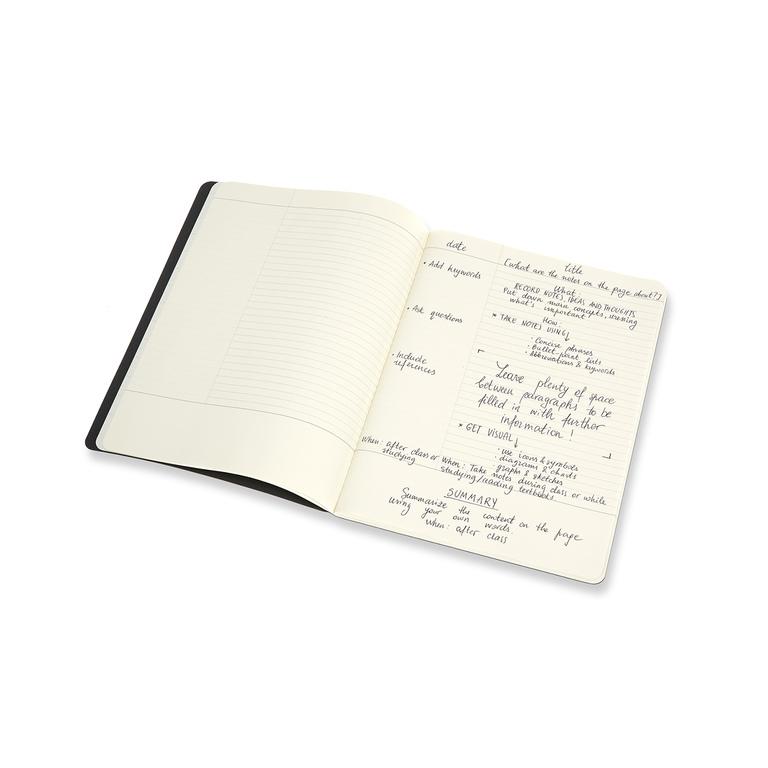 date
title
[what are the notes on the page about?]
• Add keywords
• Ask questions
• Include
references
When: after class or
studying
What:
RECORD NOTES, IDEAS AND THOUGHTS
Put down main concepts, stressing
what's important
How:
* TAKE NOTES USING↓
• Concise phrases
• Bullet point lists
• Abbreviations & keywords
Leave plenty of space
between paragraphs to be
filled in with further
information!
* GET VISUAL↓
• use icons & symbols
• diagrams & charts
graphs & sketches
When: Take notes during class or while
studying/reading textbooks
SUMMARY
Summarize the content on the page
using your own words.
When: after class